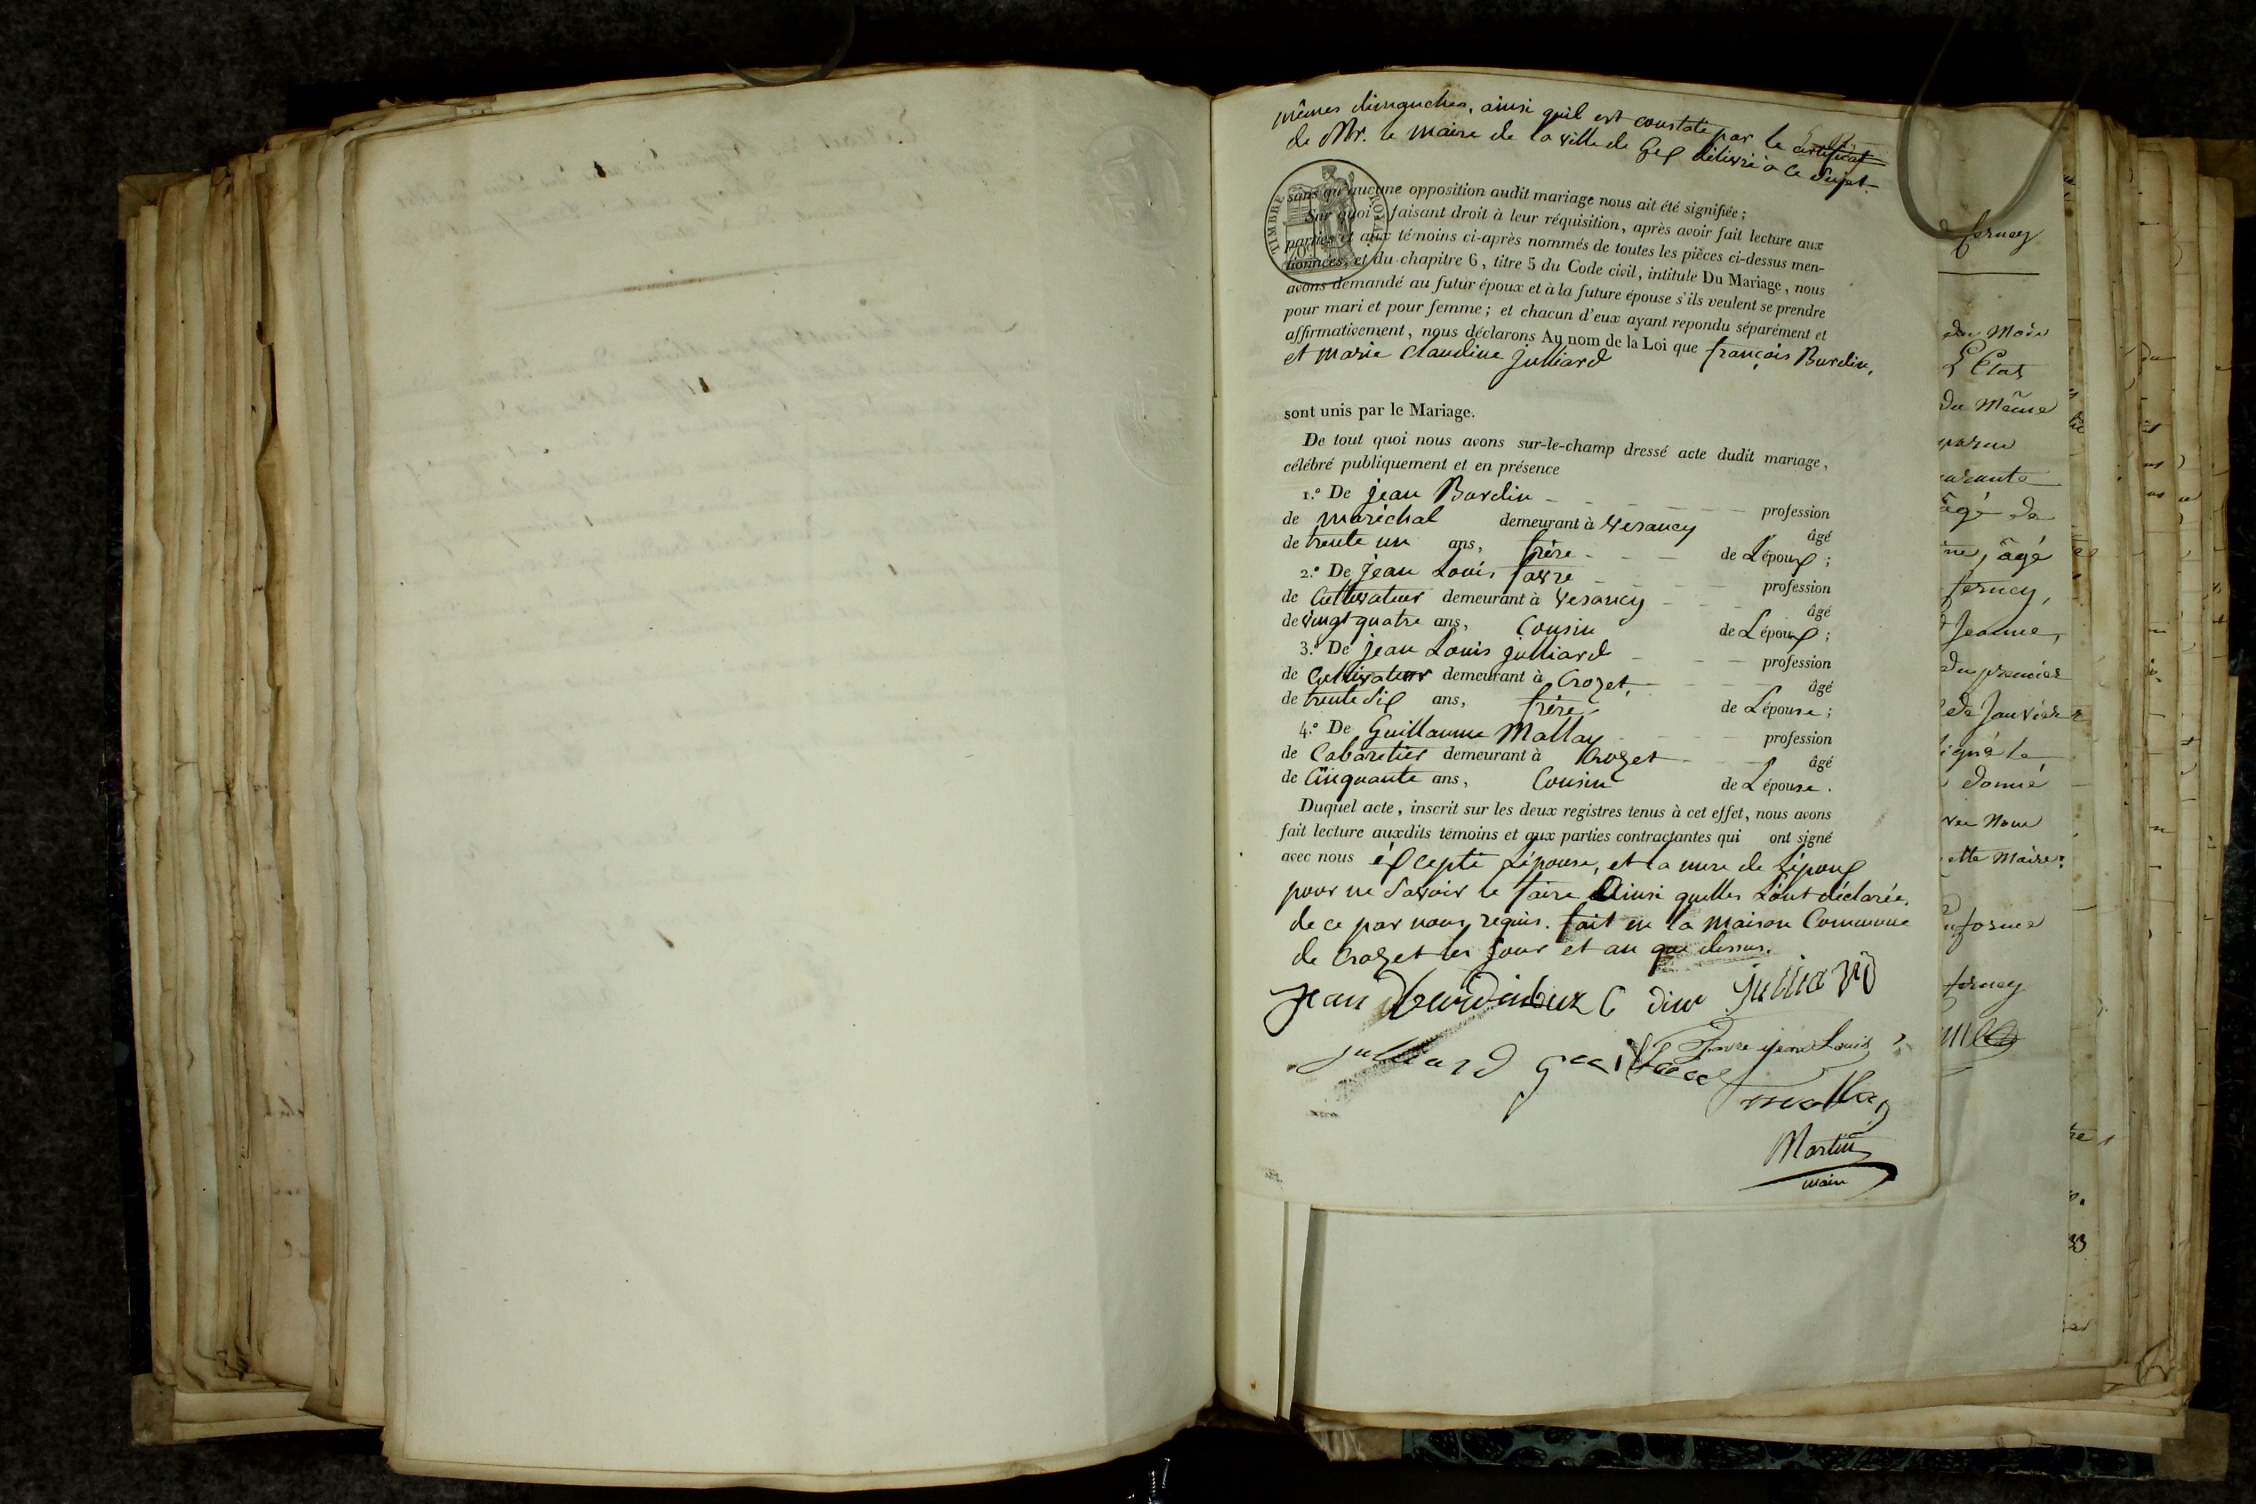 mêmes dimanches, ainsi qu'il est constaté par le certificat
de Mr. le maire de la ville de Gex délivré à ce sujet.
TIMBRE ROYAL
sans qu'aucune opposition audit mariage nous ait été signifiée ;
Sur quoi faisant droit à leur réquisition, après avoir fait lecture aux
parties et aux témoins ci-après nommés de toutes les pièces ci-dessus men-
tionnées, et du chapitre 6, titre 5 du Code civil, intitulé Du Mariage, nous
avons demandé au futur époux et à la future épouse s'ils veulent se prendre
pour mari et pour femme ; et chacun d'eux ayant repondu séparément et
affirmativement, nous déclarons Au nom de la Loi que françois Burdin,
et marie Claudine julliard
sont unis par le Mariage.
De tout quoi nous avons sur-le-champ dressé acte dudit mariage,
célébré publiquement et en présence
1.° De jean Burdin profession
de maréchal demeurant à vesancy âgé
de trente un ans, frère de L'époux ;
2.° De jean Louis favre profession
de Cultivateur demeurant à vesancy âgé
de vingt quatre ans, Cousin de L'époux ;
3.° De jean Louis julliard profession
de Cultivateur demeurant à Crozet, âgé
de trente six ans, frère de L'épouse ;
4.° De Guillaume Mallay profession
de Cabaretier demeurant à Crozet âgé
de Cinquante ans, Cousin de L'épouse.
Duquel acte, inscrit sur les deux registres tenus à cet effet, nous avons
fait lecture auxdits témoins et aux parties contractantes qui ont signé
avec nous éxcepté L'épouse, et la mere de L'époux
pour ne Savoir le faire Ainsi quelles L'ont déclarée,
de ce par nous requis. fait en la maison Commune
de Crozet les jour et an que dessus.
jean julliard
favre jean Louis
julliard
mallay
Martin
maire
ferney
du Mois
L'Etat
du Même
âgé de
âgé
ferney,
Jeanne,
du premier
de Janvier
donné
Nous
ferney
33